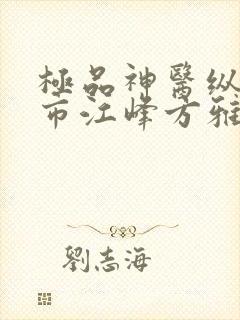 極品神醫纵
市江峰方雅
劉志海